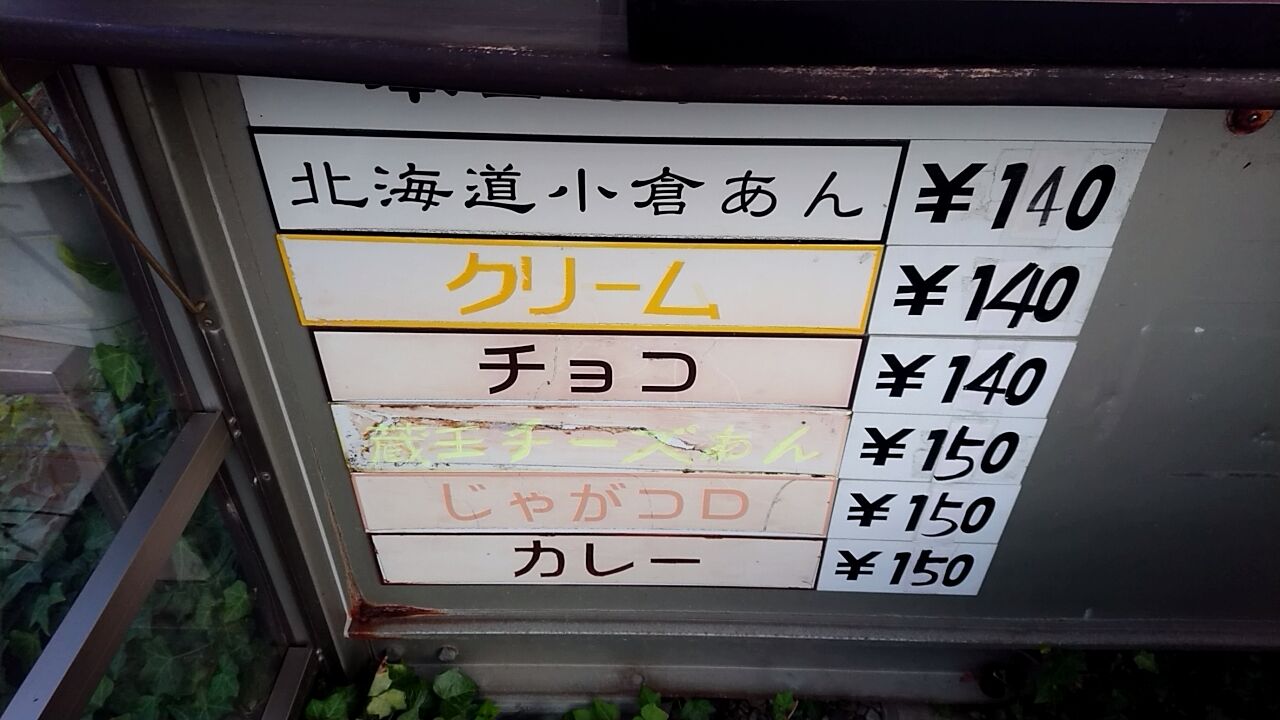 北海道小倉あん ¥140
クリーム ¥140
チョコ ¥140
蔵王チーズあん ¥150
じゃがコロ ¥150
カレー ¥150